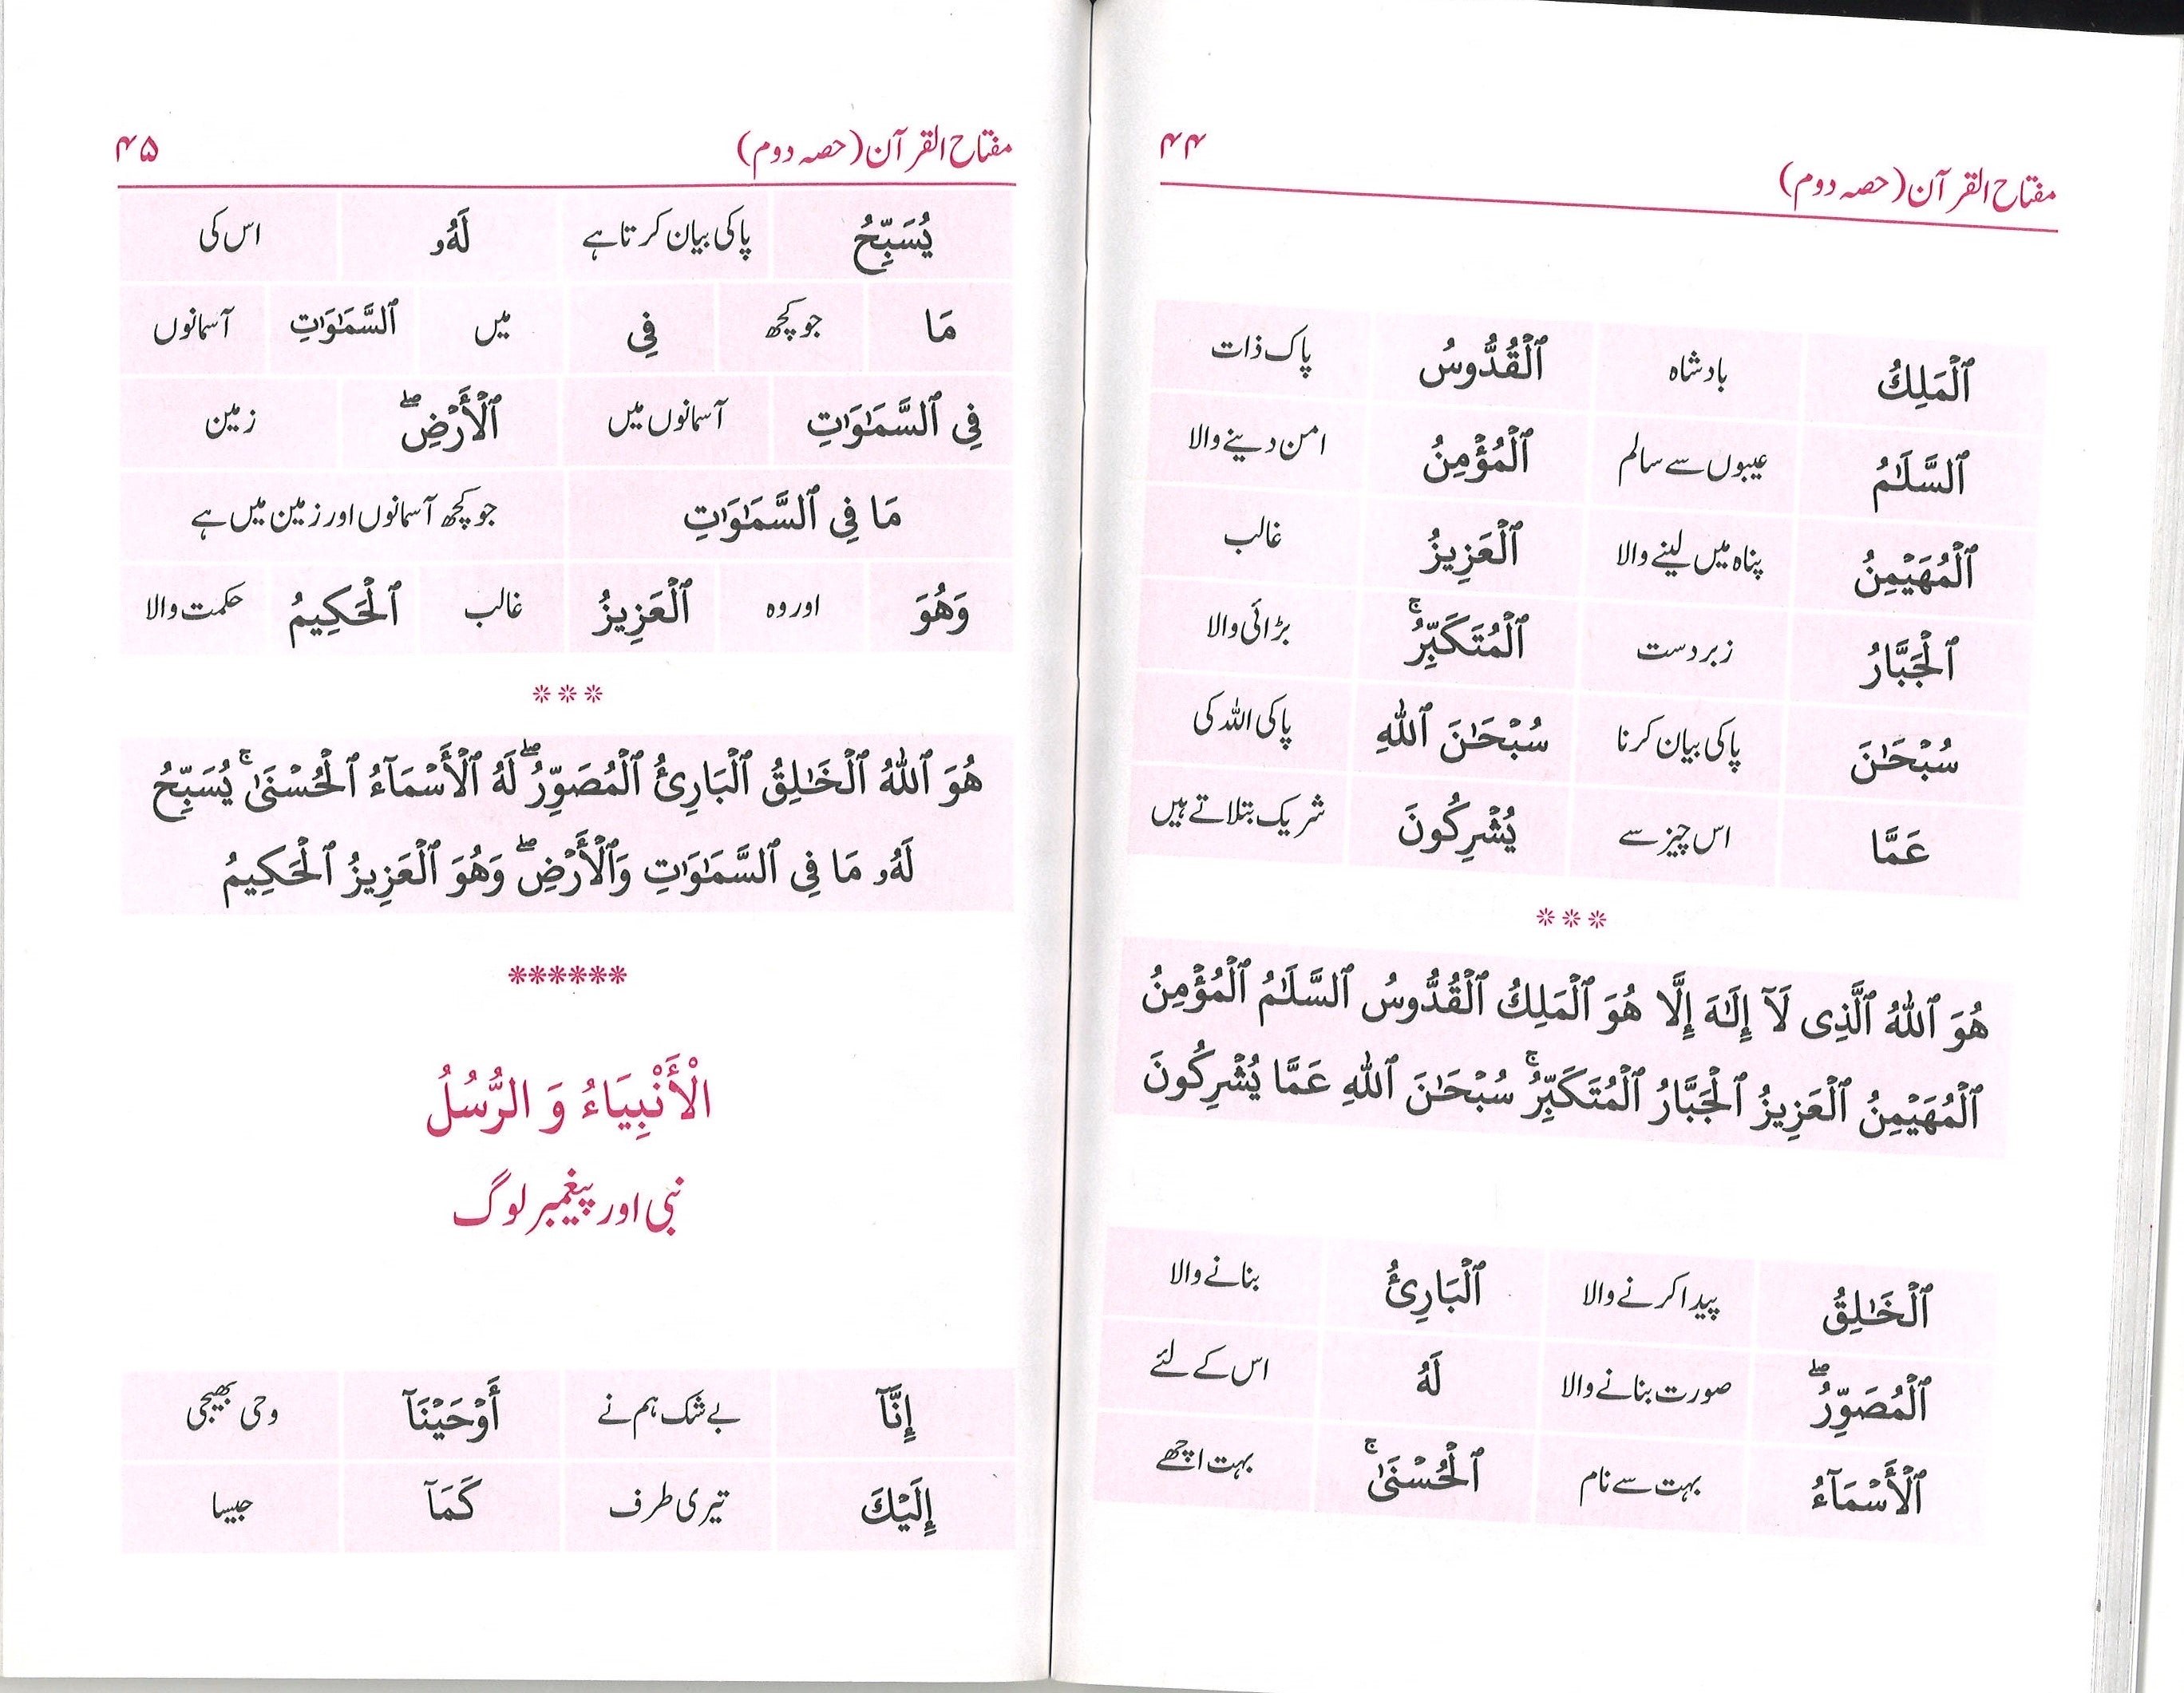 مفتاح القرآن (حصہ دوم) ۴۴
ٱلْمَلِكُ بادشاہ ٱلْقُدُّوسُ پاک ذات
ٱلسَّلَـٰمُ عیبوں سے سالم ٱلْمُؤْمِنُ امن دینے والا
ٱلْمُهَيْمِنُ پناہ میں لینے والا ٱلْعَزِيزُ غالب
ٱلْجَبَّارُ زبردست ٱلْمُتَكَبِّرُ ۚ بڑائی والا
سُبْحَـٰنَ پاکی بیان کرنا سُبْحَـٰنَ ٱللَّهِ پاکی اللہ کی
عَمَّا اس چیز سے يُشْرِكُونَ شریک بتلاتے ہیں
***
هُوَ ٱللَّهُ ٱلَّذِى لَآ إِلَـٰهَ إِلَّا هُوَ ٱلْمَلِكُ ٱلْقُدُّوسُ ٱلسَّلَـٰمُ ٱلْمُؤْمِنُ
ٱلْمُهَيْمِنُ ٱلْعَزِيزُ ٱلْجَبَّارُ ٱلْمُتَكَبِّرُ ۚ سُبْحَـٰنَ ٱللَّهِ عَمَّا يُشْرِكُونَ
ٱلْخَـٰلِقُ پیدا کرنے والا ٱلْبَارِئُ بنانے والا
ٱلْمُصَوِّرُ ۖ صورت بنانے والا لَهُ اس کے لئے
ٱلْأَسْمَآءُ بہت سے نام ٱلْحُسْنَىٰ ۚ بہت اچھے
مفتاح القرآن (حصہ دوم) ۴۵
يُسَبِّحُ پاکی بیان کرتا ہے لَهُۥ اس کی
مَا جو کچھ فِى میں ٱلسَّمَـٰوَٰتِ آسمانوں
فِى ٱلسَّمَـٰوَٰتِ آسمانوں میں ٱلْأَرْضِ ۖ زمین
مَا فِى ٱلسَّمَـٰوَٰتِ جو کچھ آسمانوں اور زمین میں ہے
وَهُوَ اور وہ ٱلْعَزِيزُ غالب ٱلْحَكِيمُ حکمت والا
***
هُوَ ٱللَّهُ ٱلْخَـٰلِقُ ٱلْبَارِئُ ٱلْمُصَوِّرُ ۖ لَهُ ٱلْأَسْمَآءُ ٱلْحُسْنَىٰ ۚ يُسَبِّحُ
لَهُۥ مَا فِى ٱلسَّمَـٰوَٰتِ وَٱلْأَرْضِ ۖ وَهُوَ ٱلْعَزِيزُ ٱلْحَكِيمُ
******
الْأَنْبِيَاءُ وَ الرُّسُلُ
نبی اور پیغمبر لوگ
إِنَّآ بے شک ہم نے أَوْحَيْنَآ وحی بھیجی
إِلَيْكَ تیری طرف كَمَآ جیسا